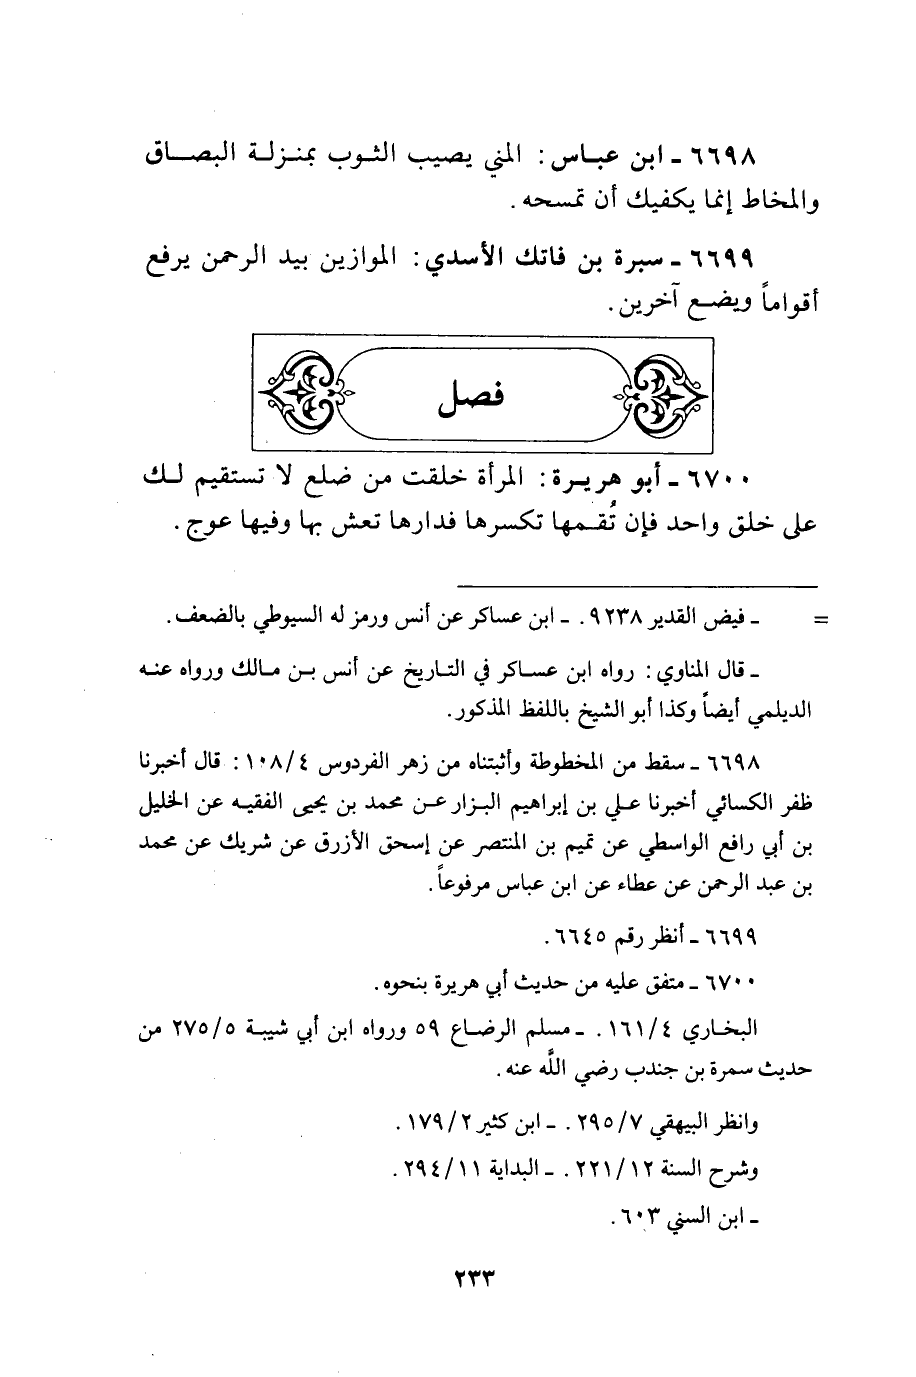 ٦٦٩٨ ـ ابن عباس : المني يصيب الثوب بمنزلة البصاق
والمخاط إنما يكفيك أن تمسحه .
٦٦٩٩ ـ سبرة بن فاتك الأسدي : الموازين بيد الرحمن يرفع
أقواماً ويضع آخرين .
فصل
٦٧٠٠ ـ أبو هريرة : المرأة خلقت من ضلع لا تستقيم لك
على خلق واحد فإن تُقمها تكسرها فدارها تعش بها وفيها عوج .
= ـ فيض القدير ٩٢٣٨ . ـ ابن عساكر عن أنس ورمز له السيوطي بالضعف .
ـ قال المناوي : رواه ابن عساكر في التاريخ عن أنس بن مالك ورواه عنه
الديلمي أيضاً وكذا أبو الشيخ باللفظ المذكور .
٦٦٩٨ ـ سقط من المخطوطة وأثبتناه من زهر الفردوس ١٠٨/٤ : قال أخبرنا
ظفر الكسائي أخبرنا علي بن إبراهيم البزار عن محمد بن يحيى الفقيه عن الخليل
بن أبي رافع الواسطي عن تميم بن المنتصر عن إسحق الأزرق عن شريك عن محمد
بن عبد الرحمن عن عطاء عن ابن عباس مرفوعاً .
٦٦٩٩ ـ أنظر رقم ٦٦٤٥ .
٦٧٠٠ ـ متفق عليه من حديث أبي هريرة بنحوه .
البخاري ١٦١/٤ . ـ مسلم الرضاع ٥٩ ورواه ابن أبي شيبة ٢٧٥/٥ من
حديث سمرة بن جندب رضي اللَّه عنه .
وانظر البيهقي ٢٩٥/٧ . ـ ابن كثير ١٧٩/٢ .
وشرح السنة ٢٢١/١٢ . ـ البداية ٢٩٤/١١ .
ـ ابن السني ٦٠٣ .
٢٣٣